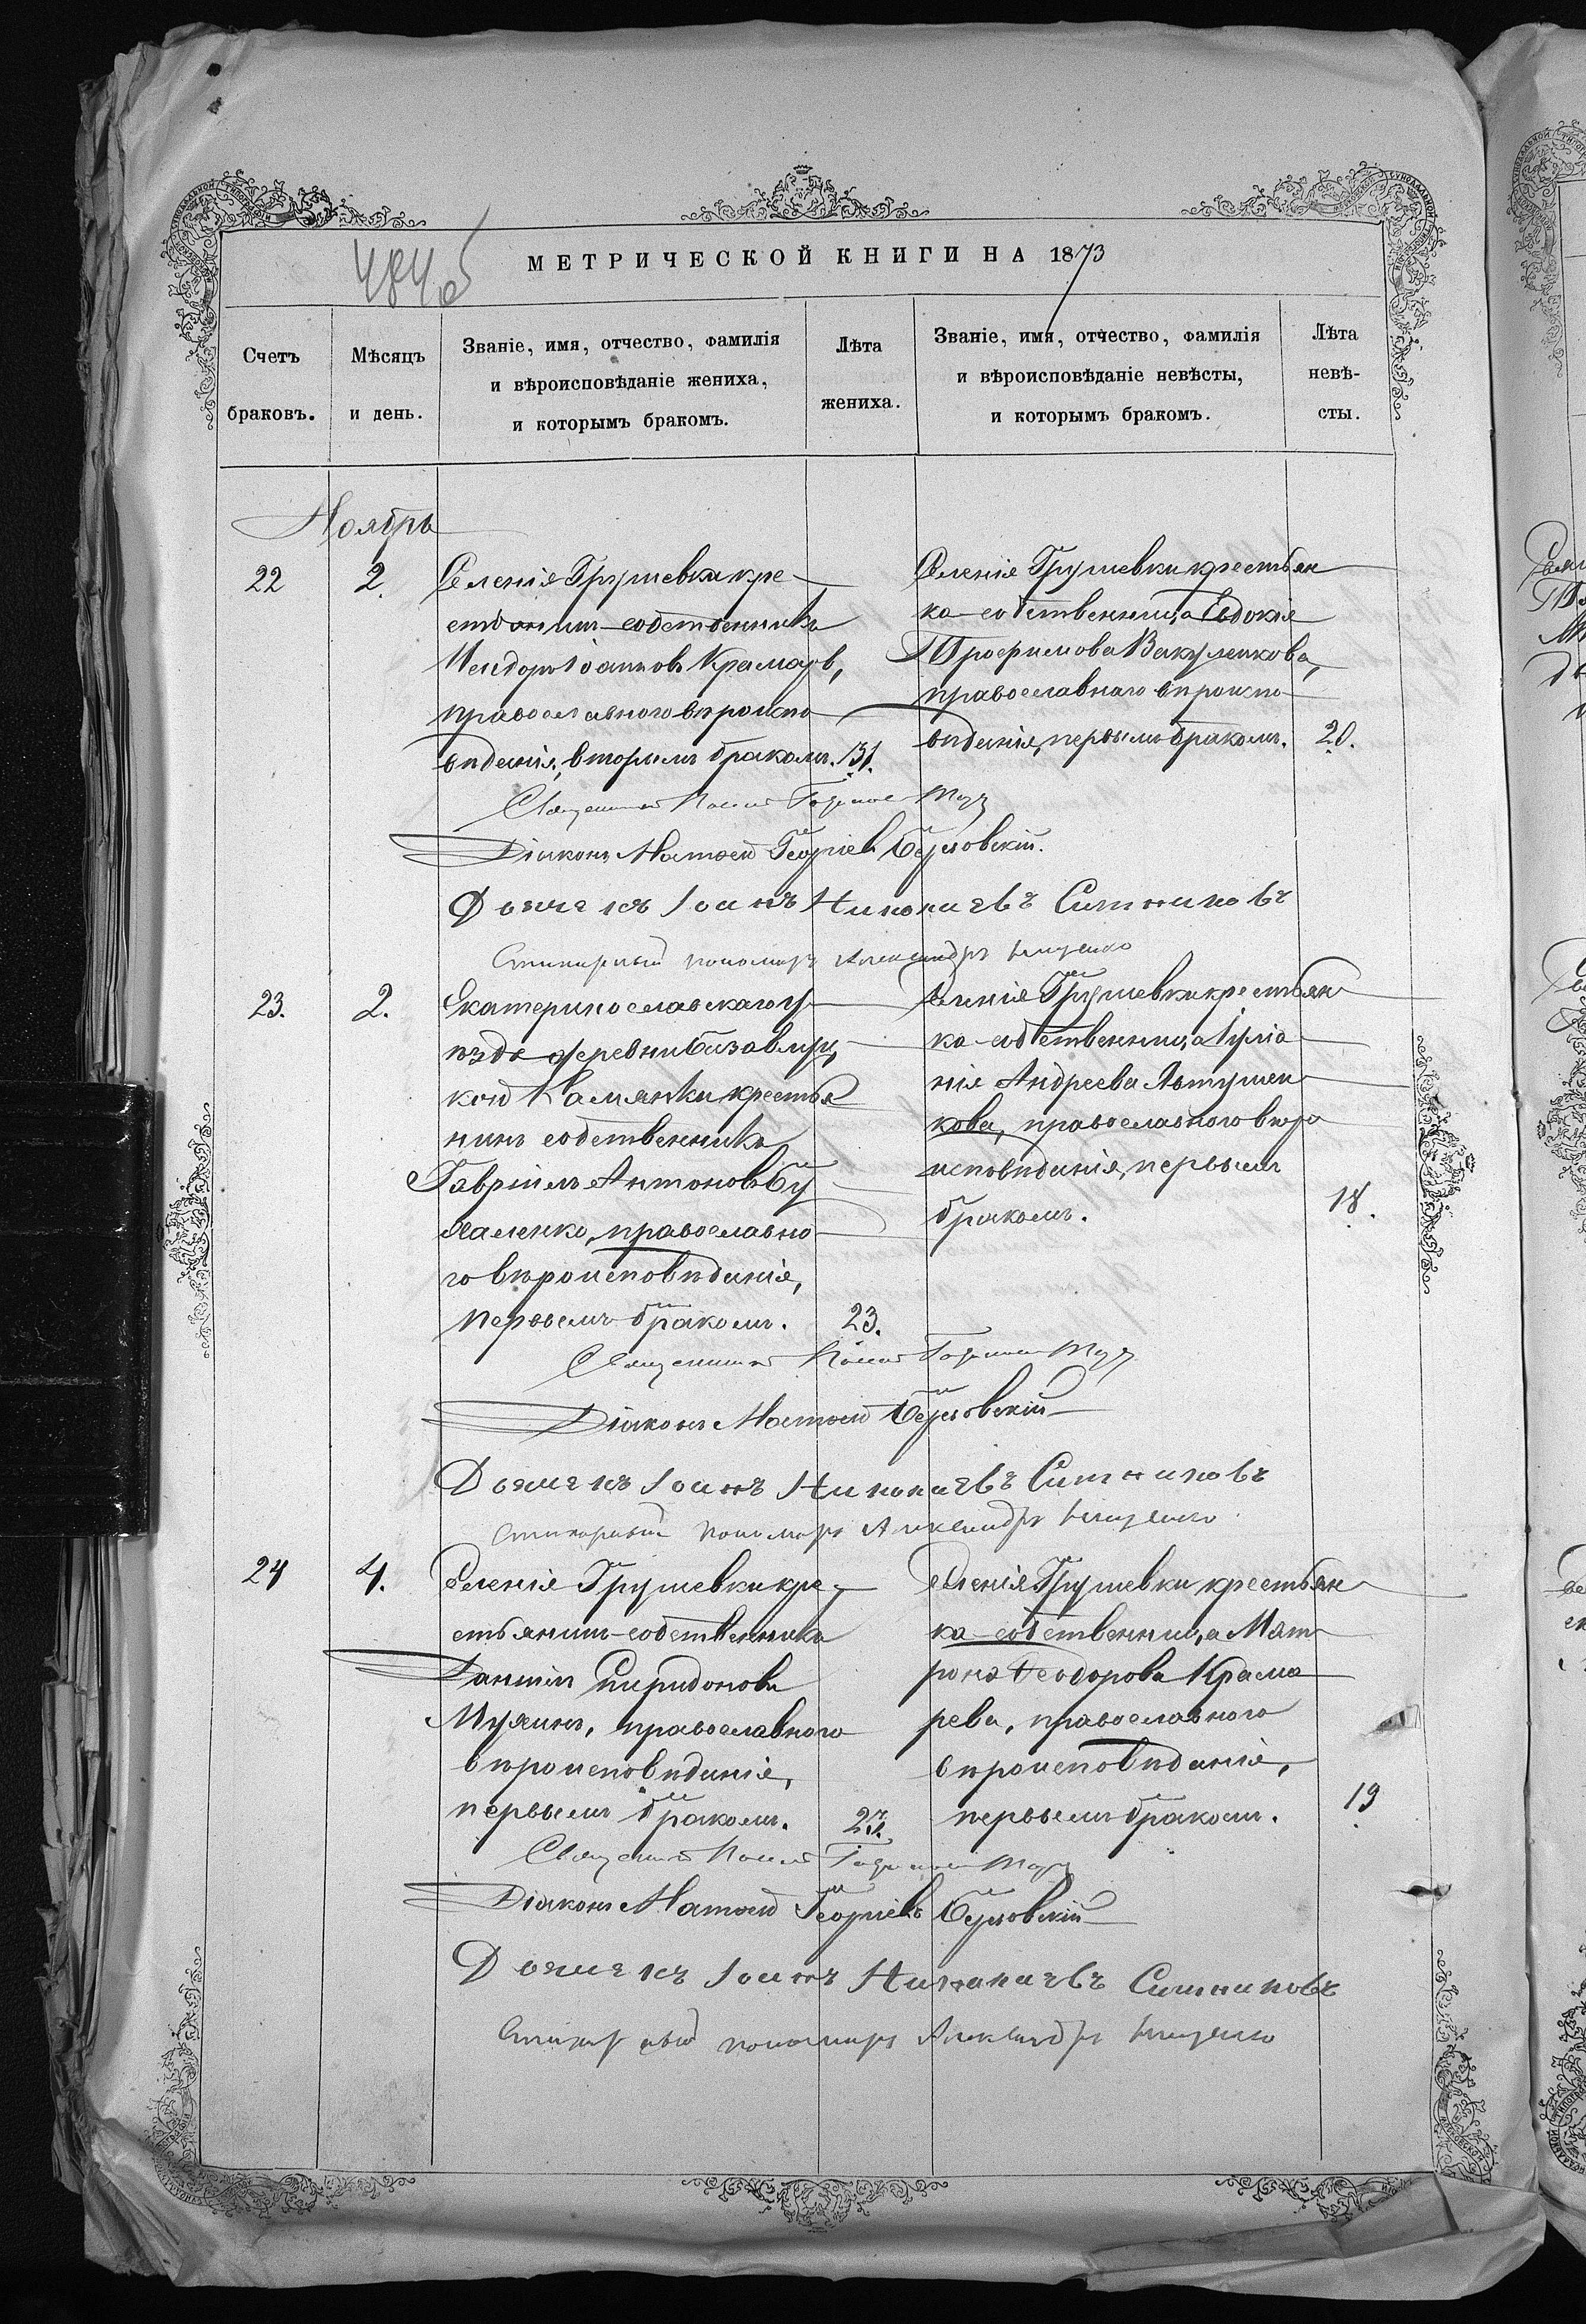 484 об
МЕТРИЧЕСКОЙ КНИГИ НА 1873
Счетъ
браковъ.
Мѣсяцъ
и день.
Званіе, имя, отчество, фамилія
и вѣроисповѣданіе жениха,
и которымъ бракомъ.
Лѣта
жениха.
Званіе, имя, отчество, фамилія
и вѣроисповѣданіе невѣсты,
и которымъ бракомъ.
Лѣта
невѣ-
сты.
Ноябрь
22
2.
Селенія Грушевки кре-
стьянинъ-собственникъ
Исидоръ Іоанновъ Крамарь,
православнаго вѣроиспо-
вѣданія, вторымъ бракомъ.
31.
Селенія Грушевки крестьян
ка-собственница Евдокія
Трофимова Вакуленкова,
православнаго вѣроиспо-
вѣданія, первымъ бракомъ.
20.
Священникъ
Діаконъ Матѳей Георгіевъ
Дьячекъ Іоаннъ Ситниковъ
Стихарный пономарь Александръ
23.
2.
Екатеринославскаго у-
ѣзда деревни Базавлуц-
кой Камянки крестья
нинъ собственникъ
Гавріилъ Антоновъ Бу
каленко, православна-
го вѣроисповѣданія,
первымъ бракомъ.
23.
Селенія Грушевки крестьян
ка-собственница Іуліа-
нія Андреева Автушен
кова, православнаго вѣро
исповѣданія, первымъ
бракомъ.
18.
Священникъ
Діаконъ Матѳей
Дьячекъ Іоаннъ Ситниковъ
Стихарный пономарь Александръ
24
4.
Селенія Грушевки кре-
стьянинъ-собственникъ
Даніилъ Спиридоновъ
православнаго
вѣроисповѣданія,
первымъ бракомъ.
23.
Селенія Грушевки крестьян
ка-собственница Мат
рона Ѳеодорова Крама
рева, православнаго
вѣроисповѣданія,
первымъ бракомъ.
19
Священникъ
Діаконъ Матѳей Георгіевъ
Дьячекъ Іоаннъ Ситниковъ
Стихарный пономарь Александръ